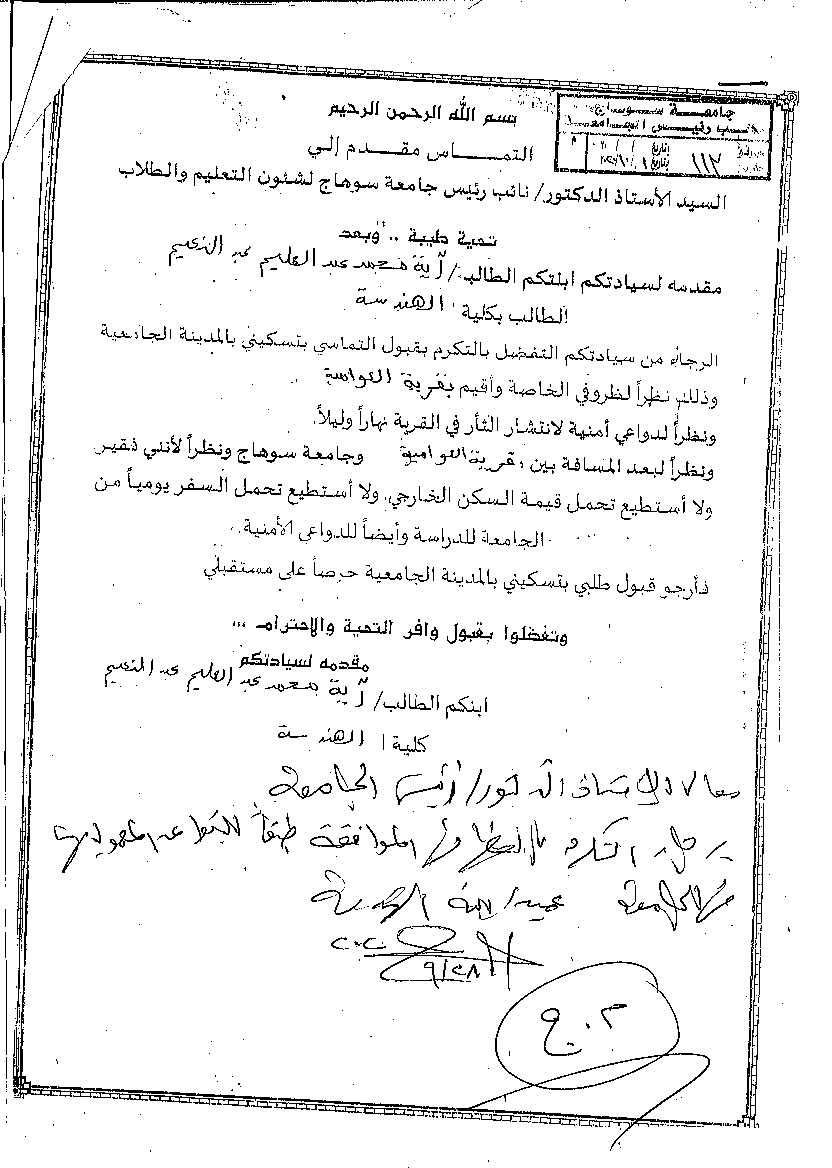 جامعة سوهاج
نائب رئيس الجامعة
١١٢
بسم الله الرحمن الرحيم
التمـــاس مقـدم إلي
السيد الأستاذ الدكتور/ نائب رئيس جامعة سوهاج لشئون التعليم والطلاب
تحية طيبة .. وبعد
مقدمه لسيادتكم ابنتكم الطالب/ آية محمد عبد العليم عبد النعيم
الطالب بكلية / الهندسة
الرجاء من سيادتكم التفضل بالتكرم بقبول التماسي بتسكيني بالمدينة الجامعية
وذلك نظراً لظروفي الخاصة وأقيم بقرية العوامية
ونظراً لدواعي أمنية لانتشار الثأر في القرية نهاراً وليلاً.
ونظراً لبعد المسافة بين قرية العوامية وجامعة سوهاج ونظراً لأنني فقير
ولا أستطيع تحمل قيمة السكن الخارجي، ولا أستطيع تحمل السفر يومياً من
الجامعة للدراسة وأيضاً للدواعي الأمنية..
فأرجو قبول طلبي بتسكيني بالمدينة الجامعية حرصاً على مستقبلي
وتفضلوا بقبول وافر التحية والاحترام ...
مقدمه لسيادتكم
ابنكم الطالب/ آية محمد عبد العليم عبد المنعيم
كلية / الهندسة
معالي الأستاذ الدكتور/ رئيس الجامعة
برجاء التكرم بالنظر في الموافقة طبقاً للقواعد المعمول بها
في الجامعة عميد كلية الهندسة
٩/٢٨